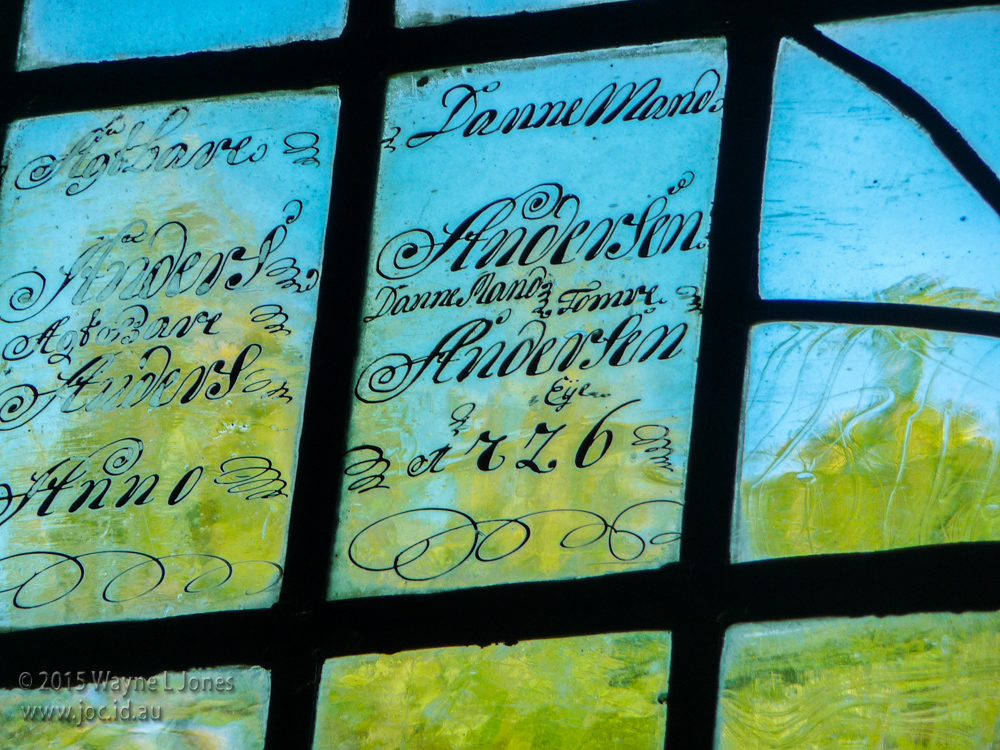 Agtbare
Anders
Agtbare
Anders
Anno
Danne Mand
Andersen
Danne Mand Tomre
Andersen
Eije
A 1726
© 2015 Wayne L Jones
www.joc.id.au